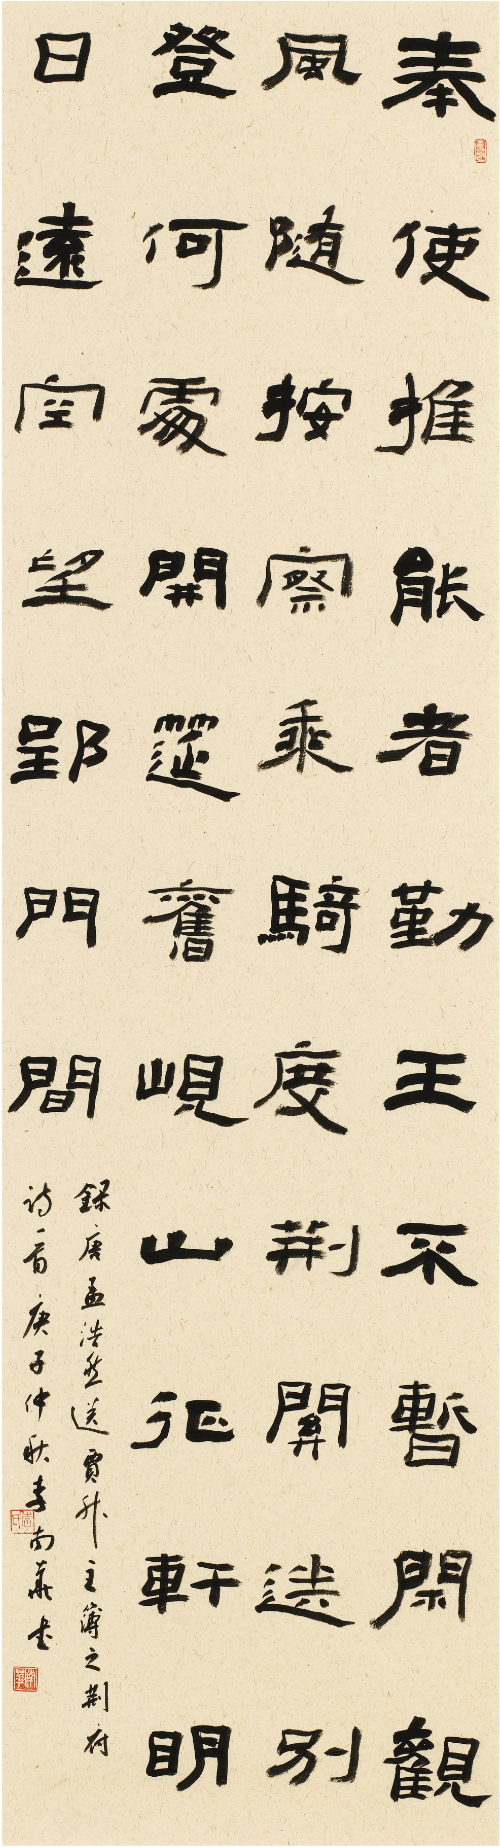 奉使推能者勤王不暫閑觀
風隨按察乘騎度荆關送別
登何處開筵舊峴山征軒明
日遠空望郢門間
錄唐孟浩然送賈升主簿之荆府
詩一首庚子仲秋李南華書